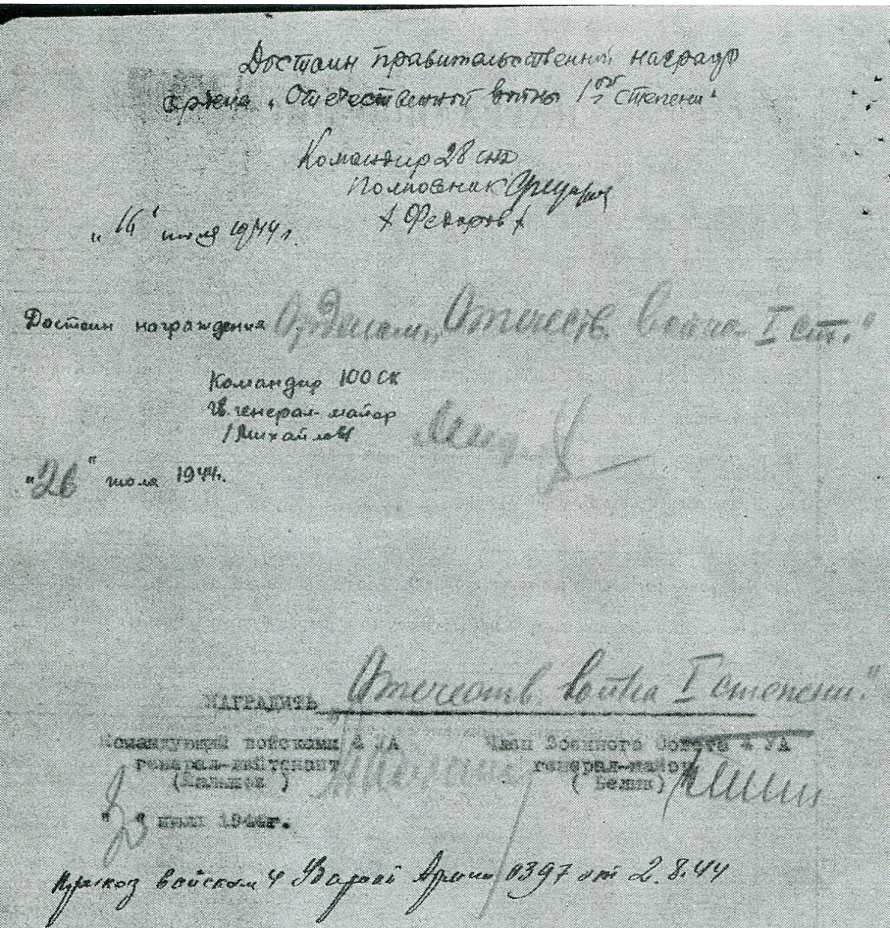 Достоин правительственной награды
ордена "Отечественной войны 1ой степени"
Командир 28 сд
Полковник
/Федоров/
"16" июля 1944 г.
Достоин награждения Орденом "Отечеств. война I ст."
Командир 100 СК
Гв. генерал-майор
/Михайлов/
"26" июля 1944г.
НАГРАДИТЬ Отечеств. война I степени."
Командующий войсками 4 УА Член Военного Совета 4 УА
генерал-лейтенант генерал-майор
(Малышев ) ( Белик)
июля 1944г.
Приказ войскам 4 Ударной Армии 0397 от 2.8.44